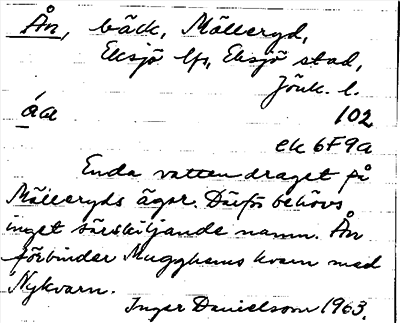 Ån, bäck, Mälleryd,
Eksjö lfs, Eksjö stad,
Jönk. l.
åa 102
ek 6F9a
Enda vattendraget på
Mälleryds ägor. Därför behövs
inget särskiljande namn. Ån
förbinder Mugghems kvarn med
Nykvarn.
Inger Danielsson 1963.